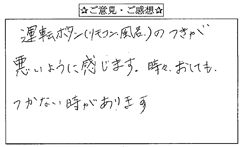 ☆ご意見・ご感想☆
運転ボタン(リモコン風呂)のつきが
悪いように感じます。時々、おしても、
つかない時があります